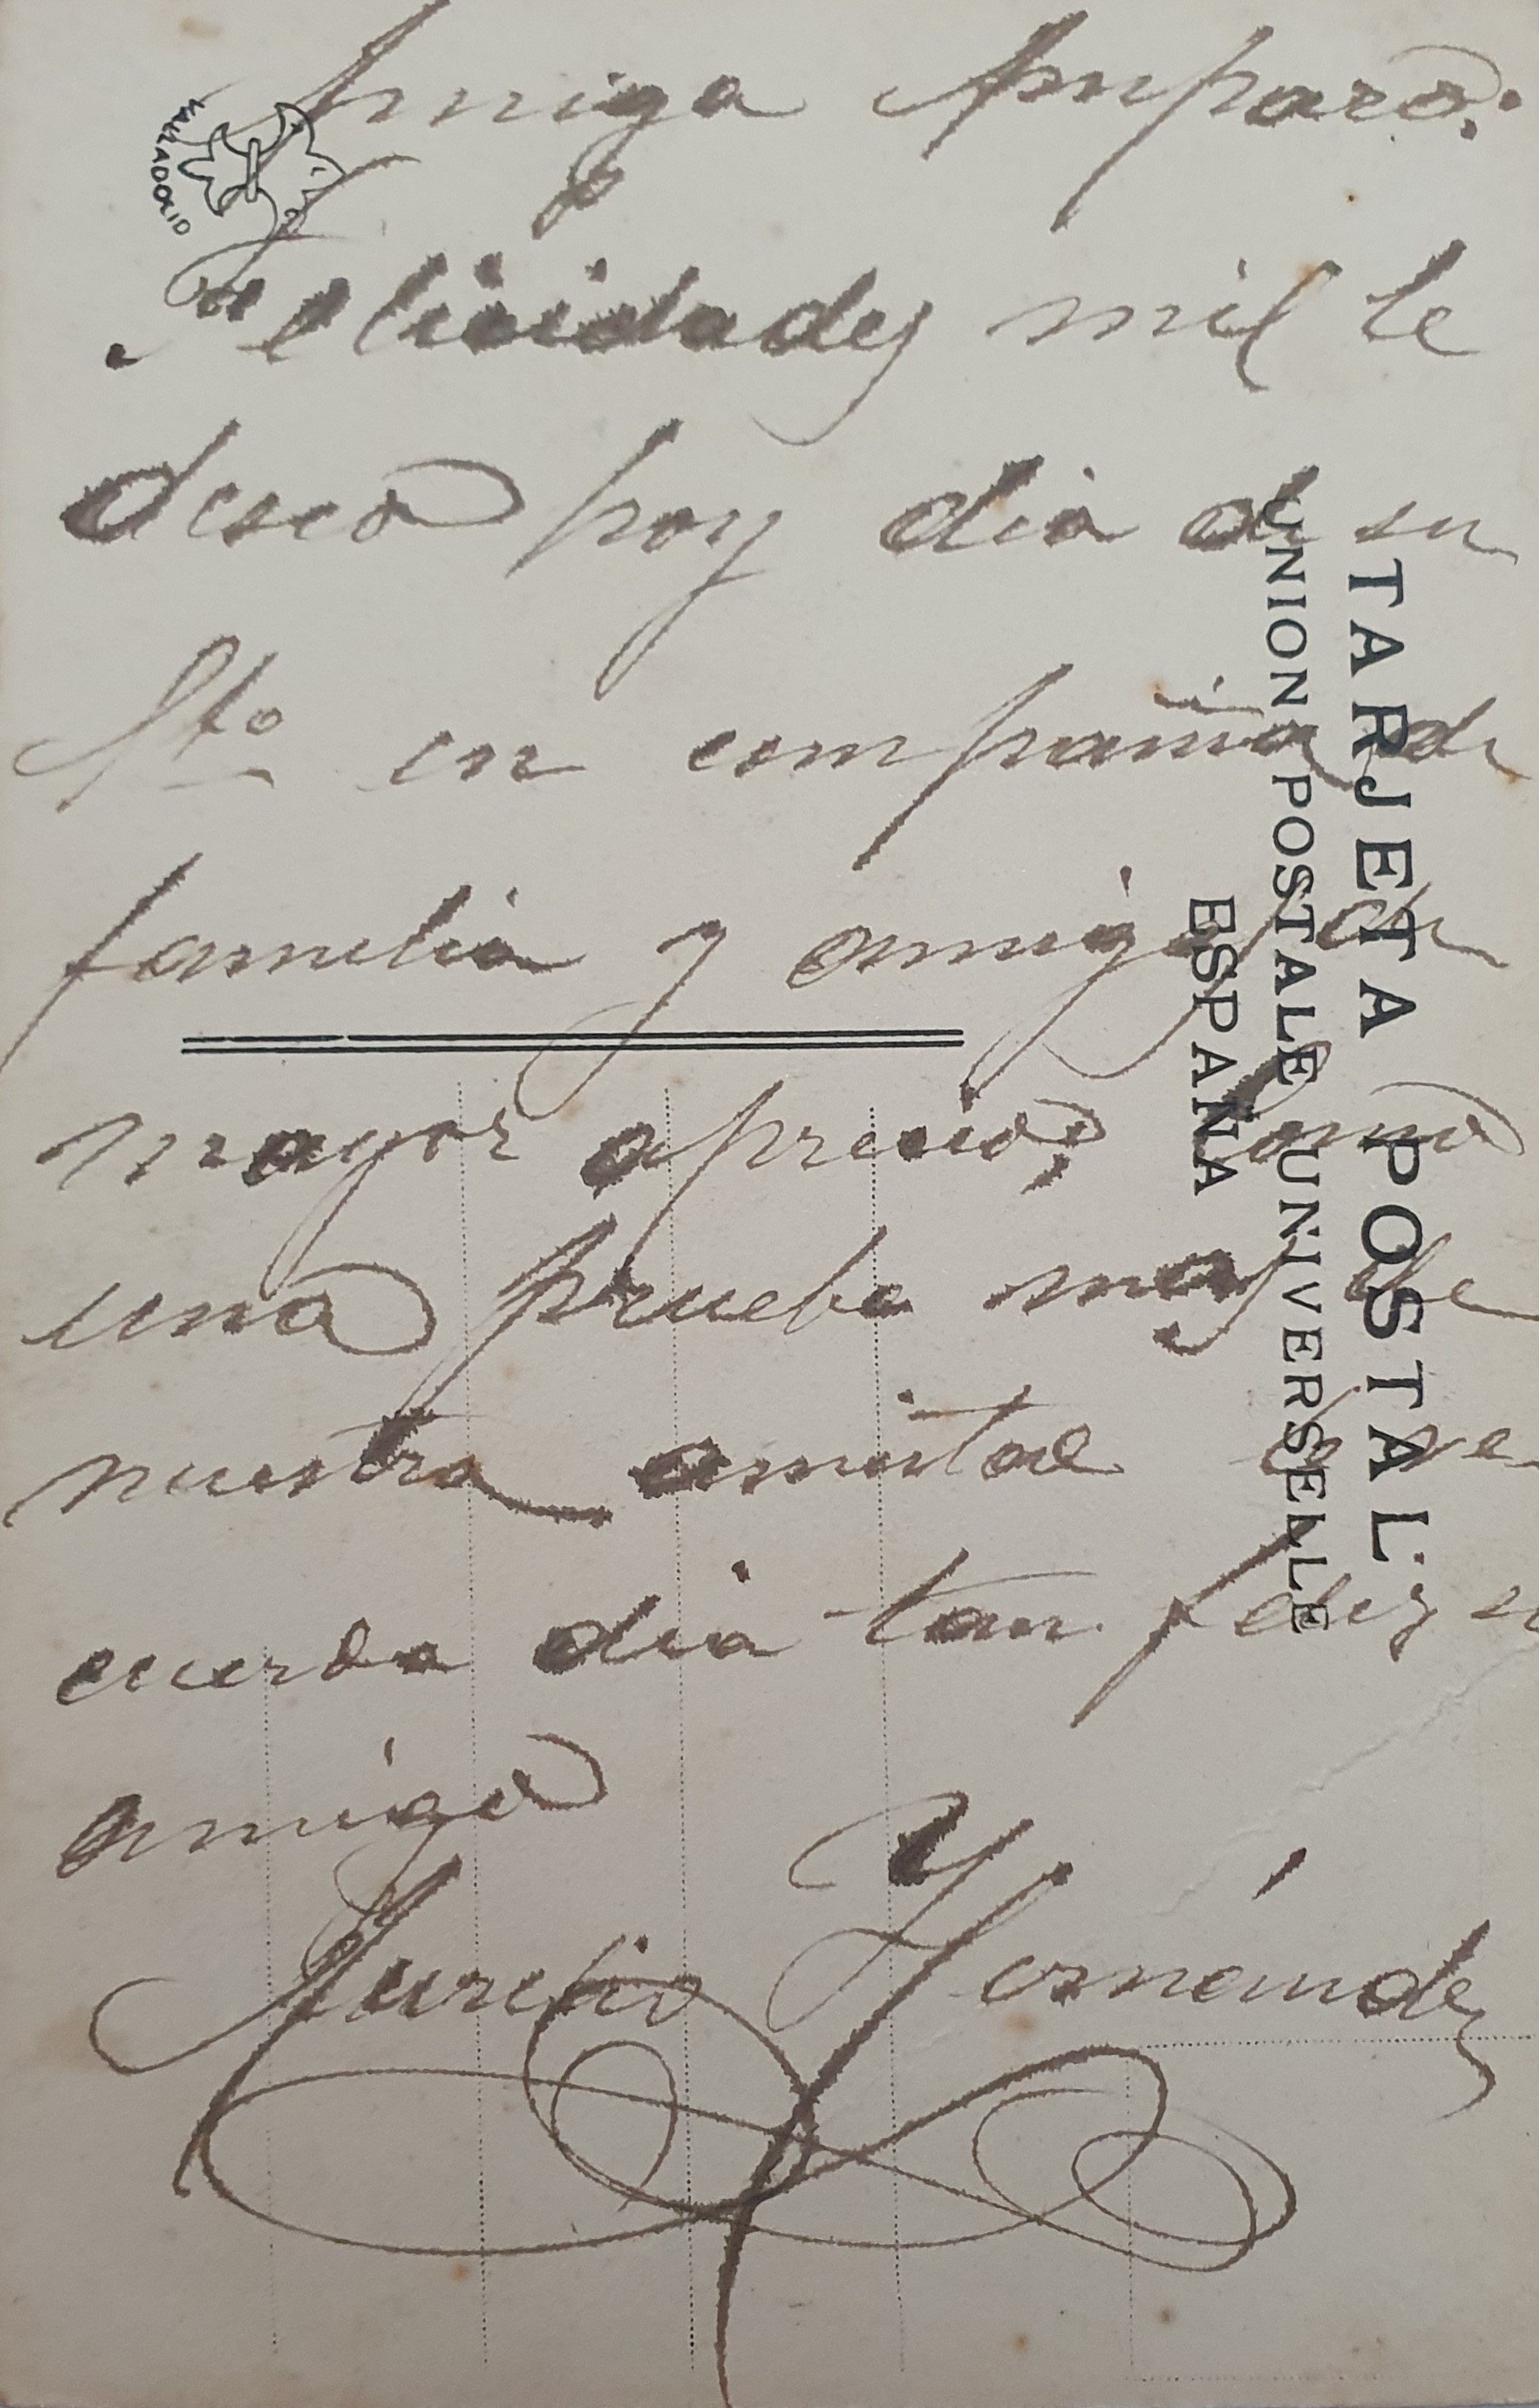 Amiga Amparo:
Felicidades mil le
deseo hoy dia de su
Sto en compañia de
familia y amigos de
mayor aprecio; como
una prueba mas de
nuestra amistad
cuerda dia tan feliz
amigo
Aurelio Hernández
TARJETA POSTAL
UNION POSTALE UNIVERSELLE
ESPAÑA
VALLADOLID